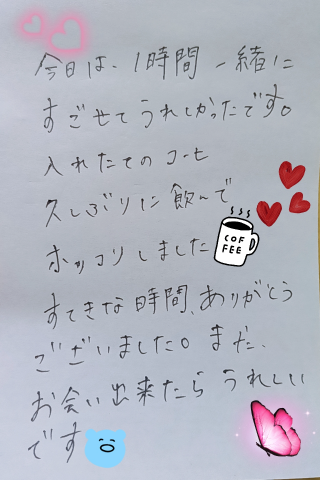 今日は、1時間一緒に
すごせてうれしかったです。
入れたてのコーヒ
久しぶりに飲んで
ホッコリしました
COF
FEE
すてきな時間、ありがとう
ございました。また、
お会い出来たらうれしい
です